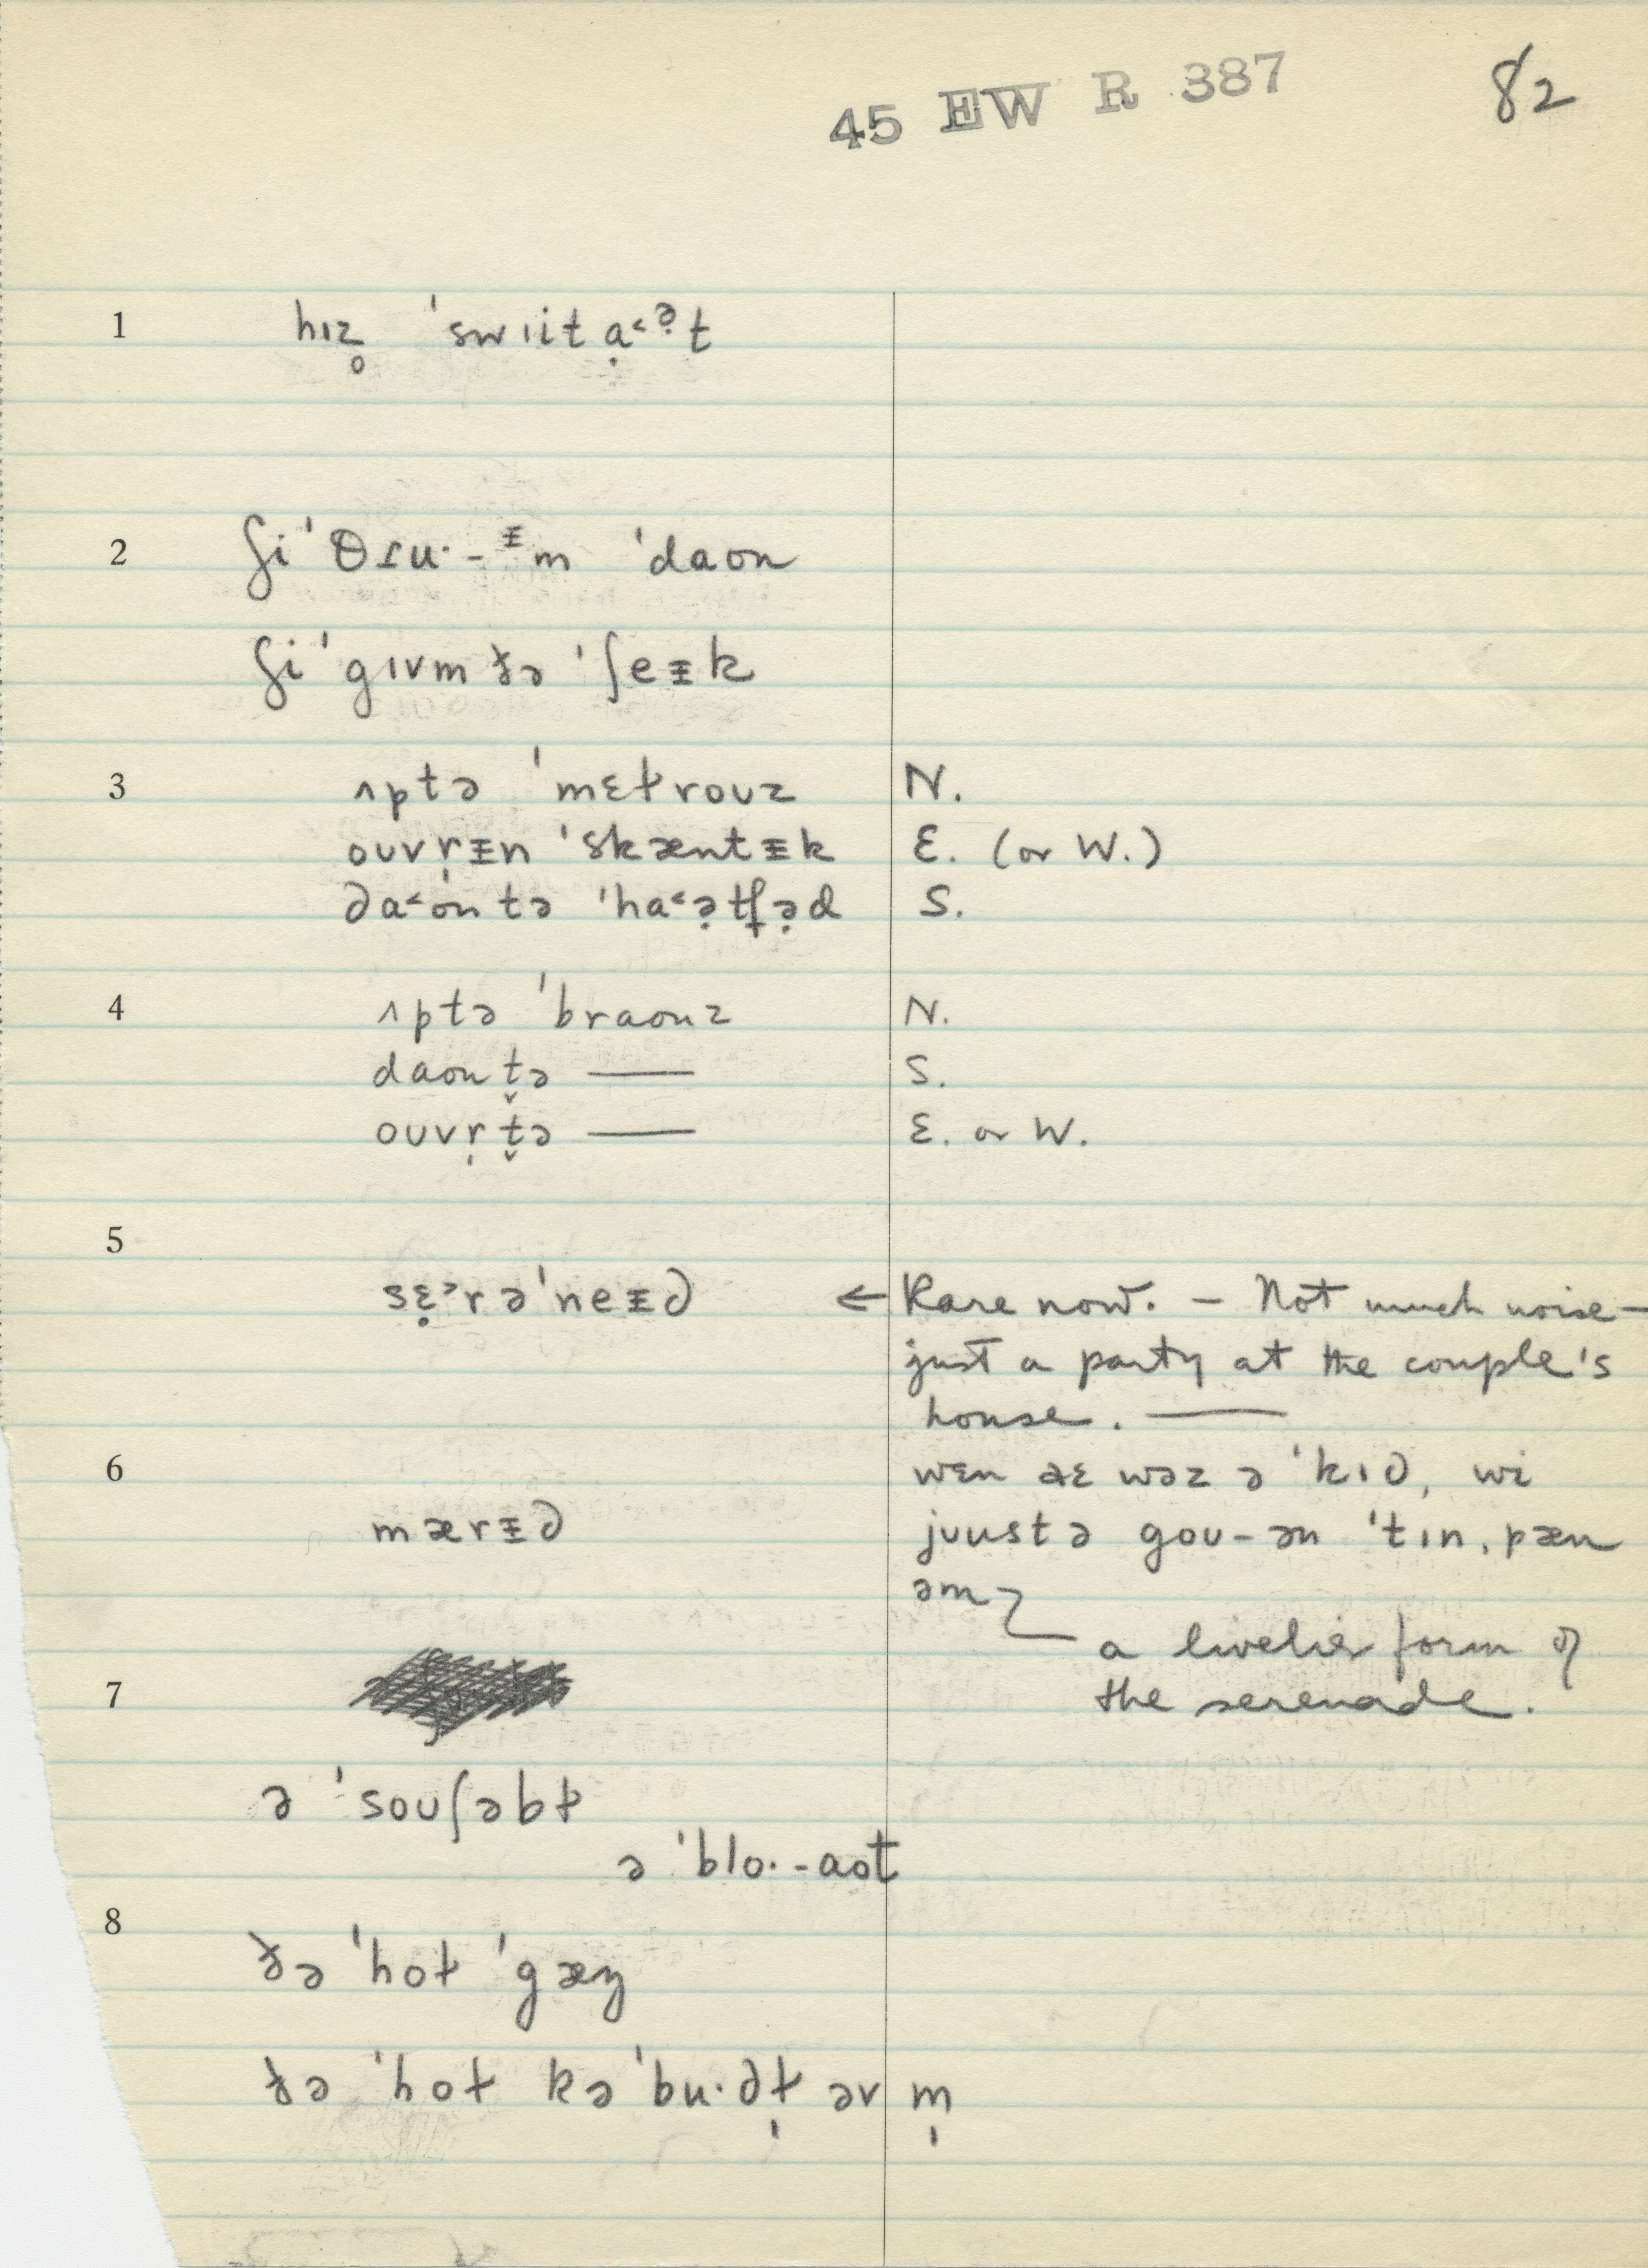 45 EW R 387 82
1 hɪz̥ ˈswɪit ạ˂ə̣t
2 ʃi ˈθɾu·-ᵻm ˈdaon
ʃi ˈgɪvm ðə ˈʃeᵻk
3 ʌptə ˈmɛɫrouz N.
ouvr̩ᵻn ˈskæntᵻk E. (or W.)
da˂ontə ˈha˂ə̣tfə̣d S.
4 ʌptə ˈbraonz N.
daon t̬ə — S.
ouvr̩ t̬ə — E. or W.
5
sɛ̣˃rəˈneᵻd ← Rare now. – Not much noise –
just a party at the couple's
house. —
6 wɛn aɛ wəz ə ˈkɪd, wi
mærᵻd juustə gou-ən ˈtɪnˌpæn
əm
a livelier form of
7 the serenade.
ə ˈsouʃəbɫ
ə ˈblo·-aot
8
ðə ˈhoɫ ˈgæŋ
ðə ˈhoɫ kəˈbu·dɫ̩ əv m̩